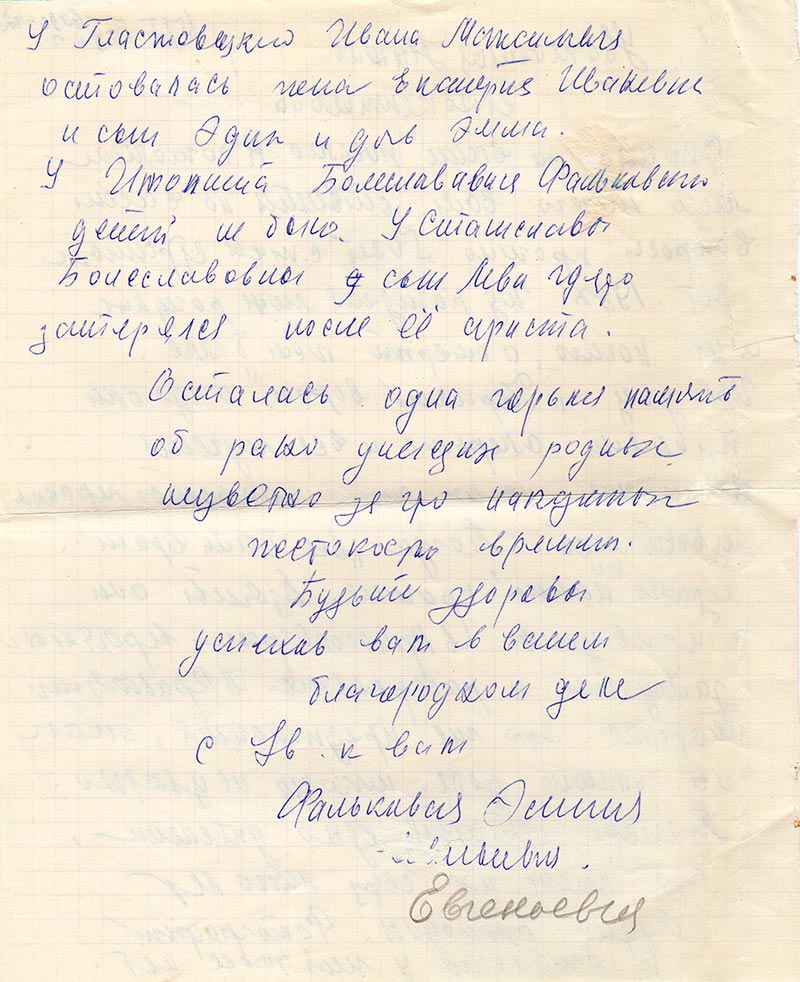 У Гластовецкого Ивана Максимовича
остовалась жена Екатерина Ивановна
и сын Эдик и дочь Эмма.
У Болеславовича Фальковского
детей не было. У Станиславы
Болеславовны сын Лева где то
затерялся после её ареста.
Осталась одна горькая память
об рано ушедших родных
неизвестно за что
жестокость времени.
Будьте здоровы
успехов вам в вашем
благородном деле
с Ув. к вам
Фальковская Эмилия
Евгеньевна